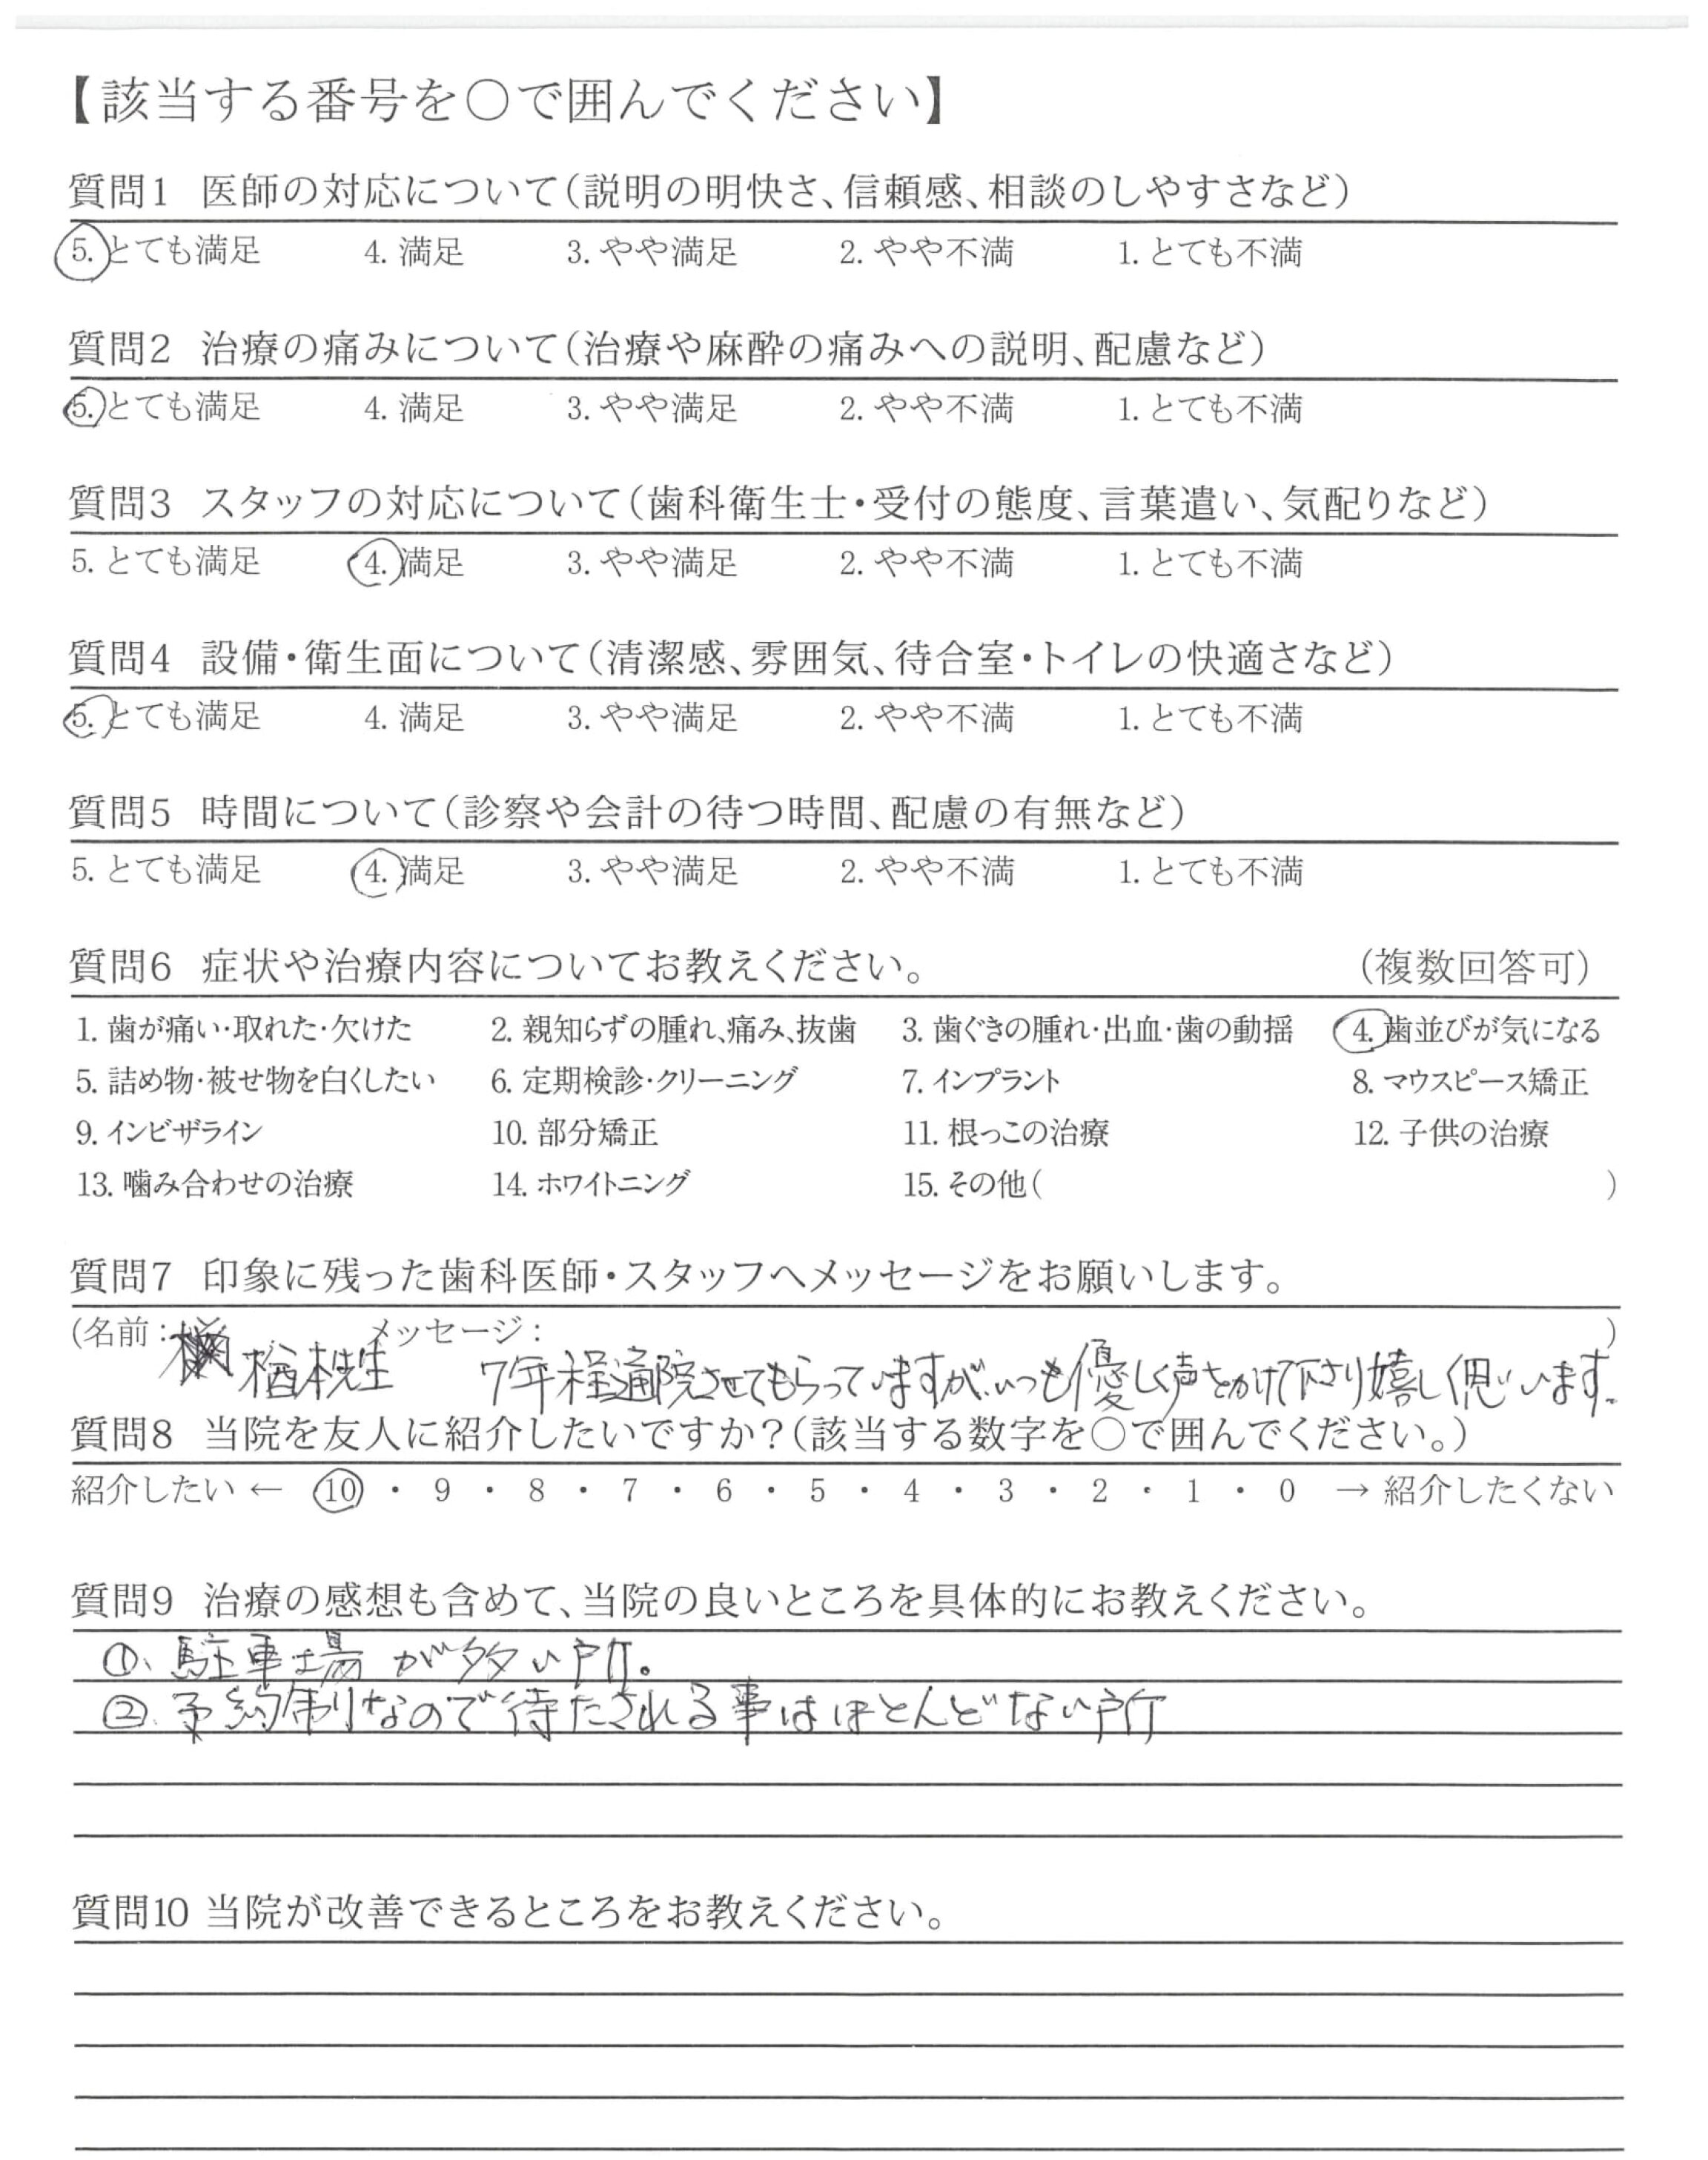 【該当する番号を○で囲んでください】
質問1 医師の対応について(説明の明快さ、信頼感、相談のしやすさなど)
5. とても満足 4. 満足 3. やや満足 2. やや不満 1. とても不満
質問2 治療の痛みについて(治療や麻酔の痛みへの説明、配慮など)
5. とても満足 4. 満足 3. やや満足 2. やや不満 1. とても不満
質問3 スタッフの対応について(歯科衛生士・受付の態度、言葉遣い、気配りなど)
5. とても満足 4. 満足 3. やや満足 2. やや不満 1. とても不満
質問4 設備・衛生面について(清潔感、雰囲気、待合室・トイレの快適さなど)
5. とても満足 4. 満足 3. やや満足 2. やや不満 1. とても不満
質問5 時間について(診察や会計の待つ時間、配慮の有無など)
5. とても満足 4. 満足 3. やや満足 2. やや不満 1. とても不満
質問6 症状や治療内容についてお教えください。 (複数回答可)
1. 歯が痛い・取れた・欠けた 2. 親知らずの腫れ、痛み、抜歯 3. 歯ぐきの腫れ・出血・歯の動揺 4. 歯並びが気になる
5. 詰め物・被せ物を白くしたい 6. 定期検診・クリーニング 7. インプラント 8. マウスピース矯正
9. インビザライン 10. 部分矯正 11. 根っこの治療 12. 子供の治療
13. 噛み合わせの治療 14. ホワイトニング 15. その他( )
質問7 印象に残った歯科医師・スタッフへメッセージをお願いします。
(名前: メッセージ: )
本先生 7年程通院させてもらっていますが、いつも優しく声をかけて下さり嬉しく思います。
質問8 当院を友人に紹介したいですか?(該当する数字を○で囲んでください。)
紹介したい ← 10 ・ 9 ・ 8 ・ 7 ・ 6 ・ 5 ・ 4 ・ 3 ・ 2 ・ 1 ・ 0 → 紹介したくない
質問9 治療の感想も含めて、当院の良いところを具体的にお教えください。
①、駐車場が多い所。
②、予約制なので待たされる事はほとんどない所
質問10 当院が改善できるところをお教えください。